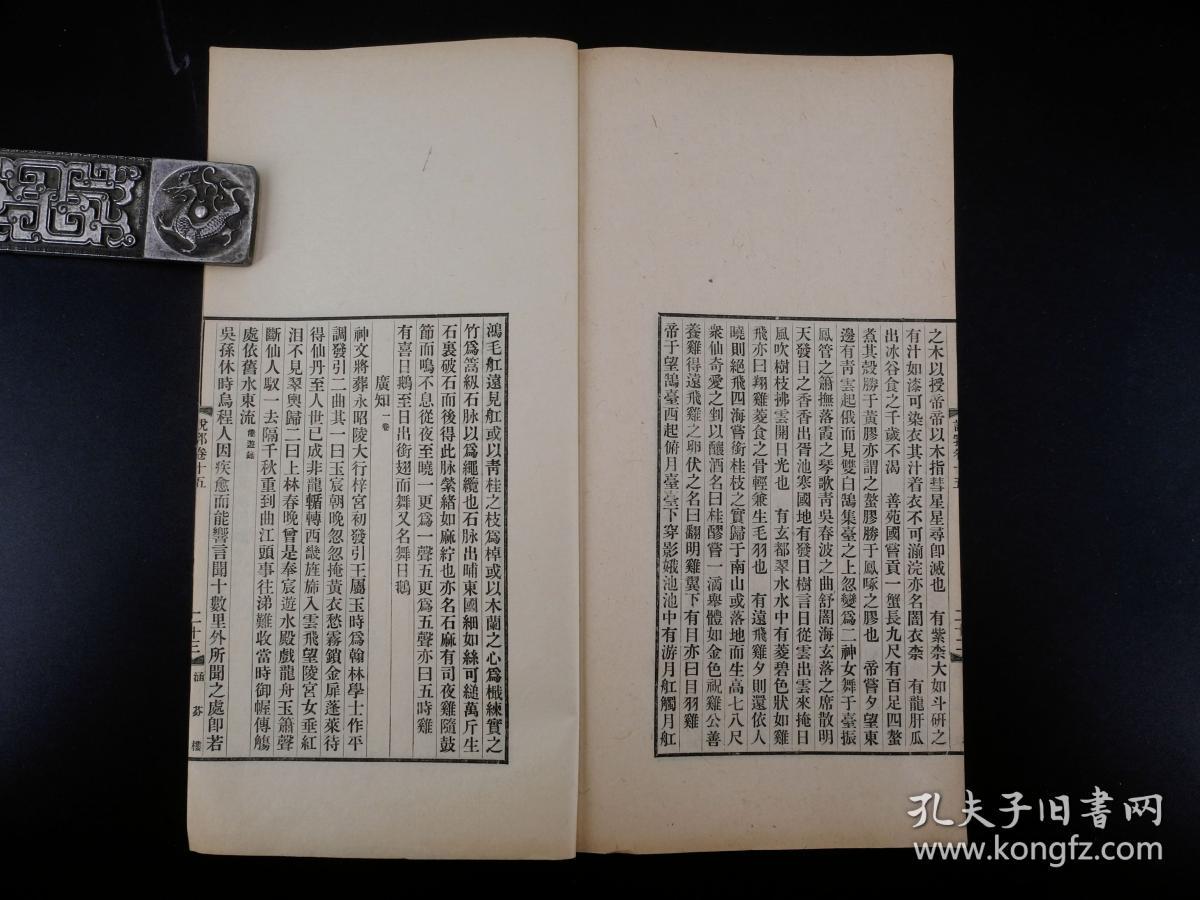 之木以授帝帝以木指彗星星尋卽滅也　有紫柰大如斗研之
有汁如漆可染衣其汁着衣不可湔浣亦名闇衣柰　有龍肝瓜
出冰谷食之千歲不渴　善苑國嘗貢一蟹長九尺有百足四螯
煮其殼勝于黃膠亦謂之螯膠勝于鳳啄之膠也　帝嘗夕望東
邊有靑雲起俄而見雙白鵠集臺之上忽變爲二神女舞于臺振
鳳管之簫撫落霞之琴歌靑吳春波之曲舒闇海玄落之席散明
天發日之香香出胥池寒國地有發日樹言日從雲出雲來掩日
風吹樹枝拂雲開日光也　有玄都翠水水中有菱碧色狀如雞
飛亦曰翔雞菱食之骨輕兼生毛羽也　有遠飛雞夕則還依人
曉則絕飛四海嘗銜桂枝之實歸于南山或落地而生高七八尺
衆仙奇愛之剉以釀酒名曰桂醪嘗一滴舉體如金色祝雞公善
養雞得遠飛雞之卵伏之名曰翻明雞翼下有目亦曰目羽雞
帝于望鵠臺西起俯月臺臺下穿影娥池池中有游月舡觸月舡
鴻毛舡遠見舡或以靑桂之枝爲棹或以木蘭之心爲檝練實之
竹爲篙紉石脉以爲繩纜也石脉出晡東國細如絲可縋萬斤生
石裏破石而後得此脉縈緒如麻紵也亦名石麻有司夜雞隨鼓
節而鳴不息從夜至曉一更爲一聲五更爲五聲亦曰五時雞
有喜日鵝至日出銜翅而舞又名舞日鵝
廣知 一卷
神文將葬永昭陵大行梓宮初發引王屬玉時爲翰林學士作平
調發引二曲其一曰玉宸朝晚忽忽掩黃衣愁霧鎖金扉蓬萊待
得仙丹至人世已成非龍輴轉西畿旌旆入雲飛望陵宮女垂紅
泪不見翠輿歸二曰上林春晚曾是奉宸遊水殿戲龍舟玉簫聲
斷仙人馭一去隔千秋重到曲江頭事往涕難收當時御幄傳觴
處依舊水東流 倦遊錄
吳孫休時烏程人因疾愈而能響言聞十數里外所聞之處卽若
說郛卷十五
二十三
涵芬樓
孔夫子旧书网
www.kongfz.com